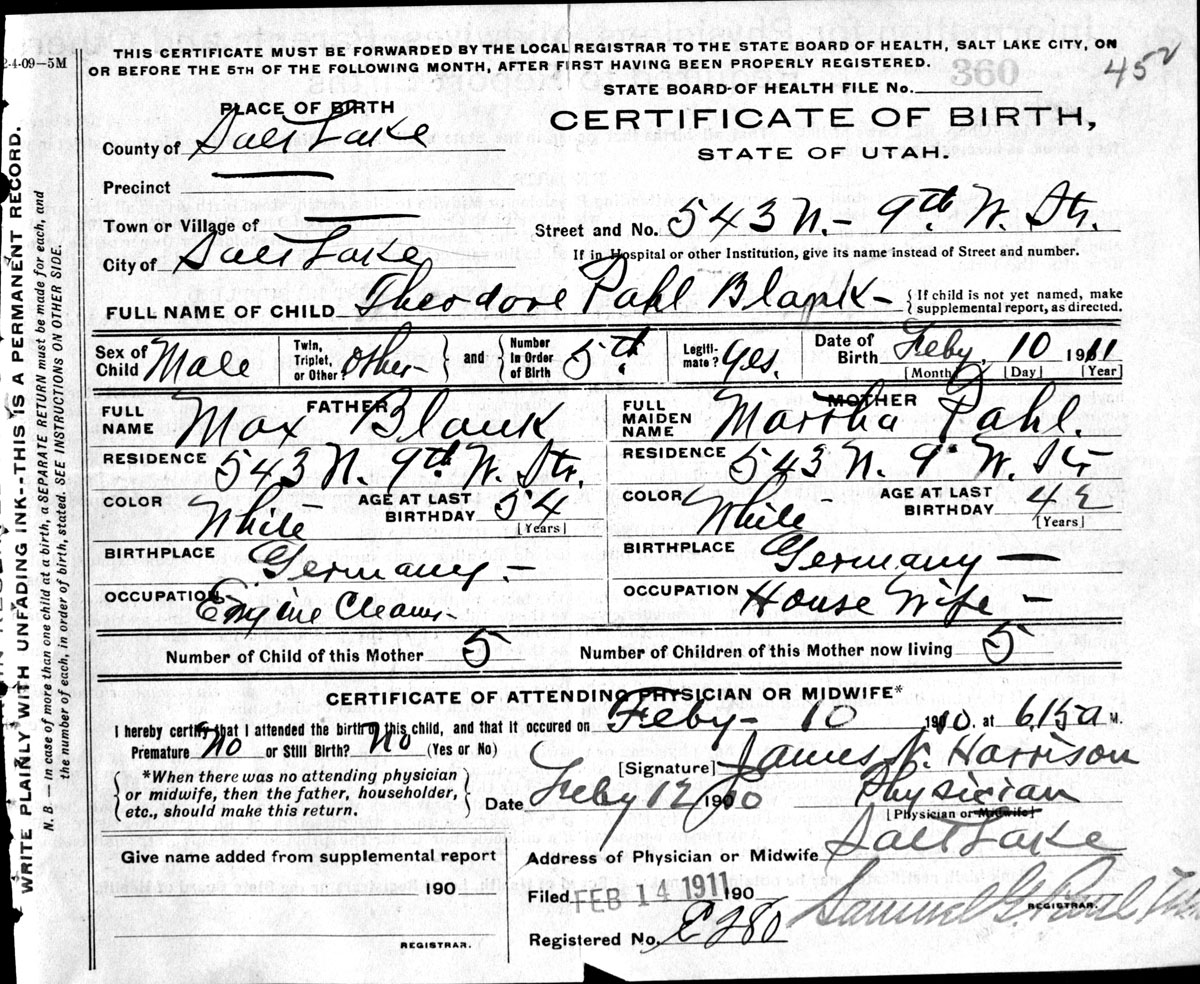 2-4-09—5M
THIS CERTIFICATE MUST BE FORWARDED BY THE LOCAL REGISTRAR TO THE STATE BOARD OF HEALTH, SALT LAKE CITY, ON
OR BEFORE THE 5TH OF THE FOLLOWING MONTH, AFTER FIRST HAVING BEEN PROPERLY REGISTERED.
360
STATE BOARD OF HEALTH FILE No.
PLACE OF BIRTH
CERTIFICATE OF BIRTH,
STATE OF UTAH.
County of Salt Lake
Precinct
Town or Village of
Street and No. 543 N. 9th W. Str.
City of Salt Lake
If in Hospital or other Institution, give its name instead of Street and number.
FULL NAME OF CHILD Theodore Pahl Blank
{If child is not yet named, make supplemental report, as directed.
Sex of Child Male Twin, Triplet, or Other? other } and { Number in Order of Birth 5th Legitimate? yes. Date of Birth Feby, 10 1911
[Month] [Day] [Year]
FATHER
MOTHER
FULL NAME Max Blank
FULL MAIDEN NAME Martha Pahl.
RESIDENCE 543 N. 9th W. Str.
RESIDENCE 543 N. 9 W. Str
COLOR White AGE AT LAST BIRTHDAY 54 [Years]
COLOR White AGE AT LAST BIRTHDAY 42 [Years]
BIRTHPLACE Germany -
BIRTHPLACE Germany —
OCCUPATION Engine Cleaner
OCCUPATION House Wife -
Number of Child of this Mother 5
Number of Children of this Mother now living 5
CERTIFICATE OF ATTENDING PHYSICIAN OR MIDWIFE*
I hereby certify that I attended the birth of this child, and that it occured on Feby- 10 1910. at 6.15 a M.
Premature No or Still Birth? No (Yes or No)
[Signature] James N. Harrison
{*When there was no attending physician or midwife, then the father, householder, etc., should make this return.}
Date Feby 12 1910 Physician
[Physician or Midwife]
Give name added from supplemental report
Address of Physician or Midwife Salt Lake
190
Filed FEB 14 1911 190
REGISTRAR.
Registered No. E 280
REGISTRAR.
WRITE PLAINLY WITH UNFADING INK--THIS IS A PERMANENT RECORD.
N. B. — In case of more than one child at a birth, a SEPARATE RETURN must be made for each, and
the number of each, in order of birth, stated. SEE INSTRUCTIONS ON OTHER SIDE.